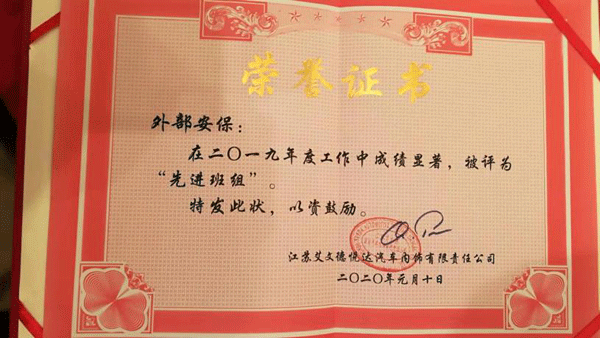 荣誉证书
外部安保：
在二〇一九年度工作中成绩显著，被评为
“先进班组”。
特发此状，以资鼓励。
江苏艾文德悦达汽车内饰有限责任公司
二〇二〇年元月十日